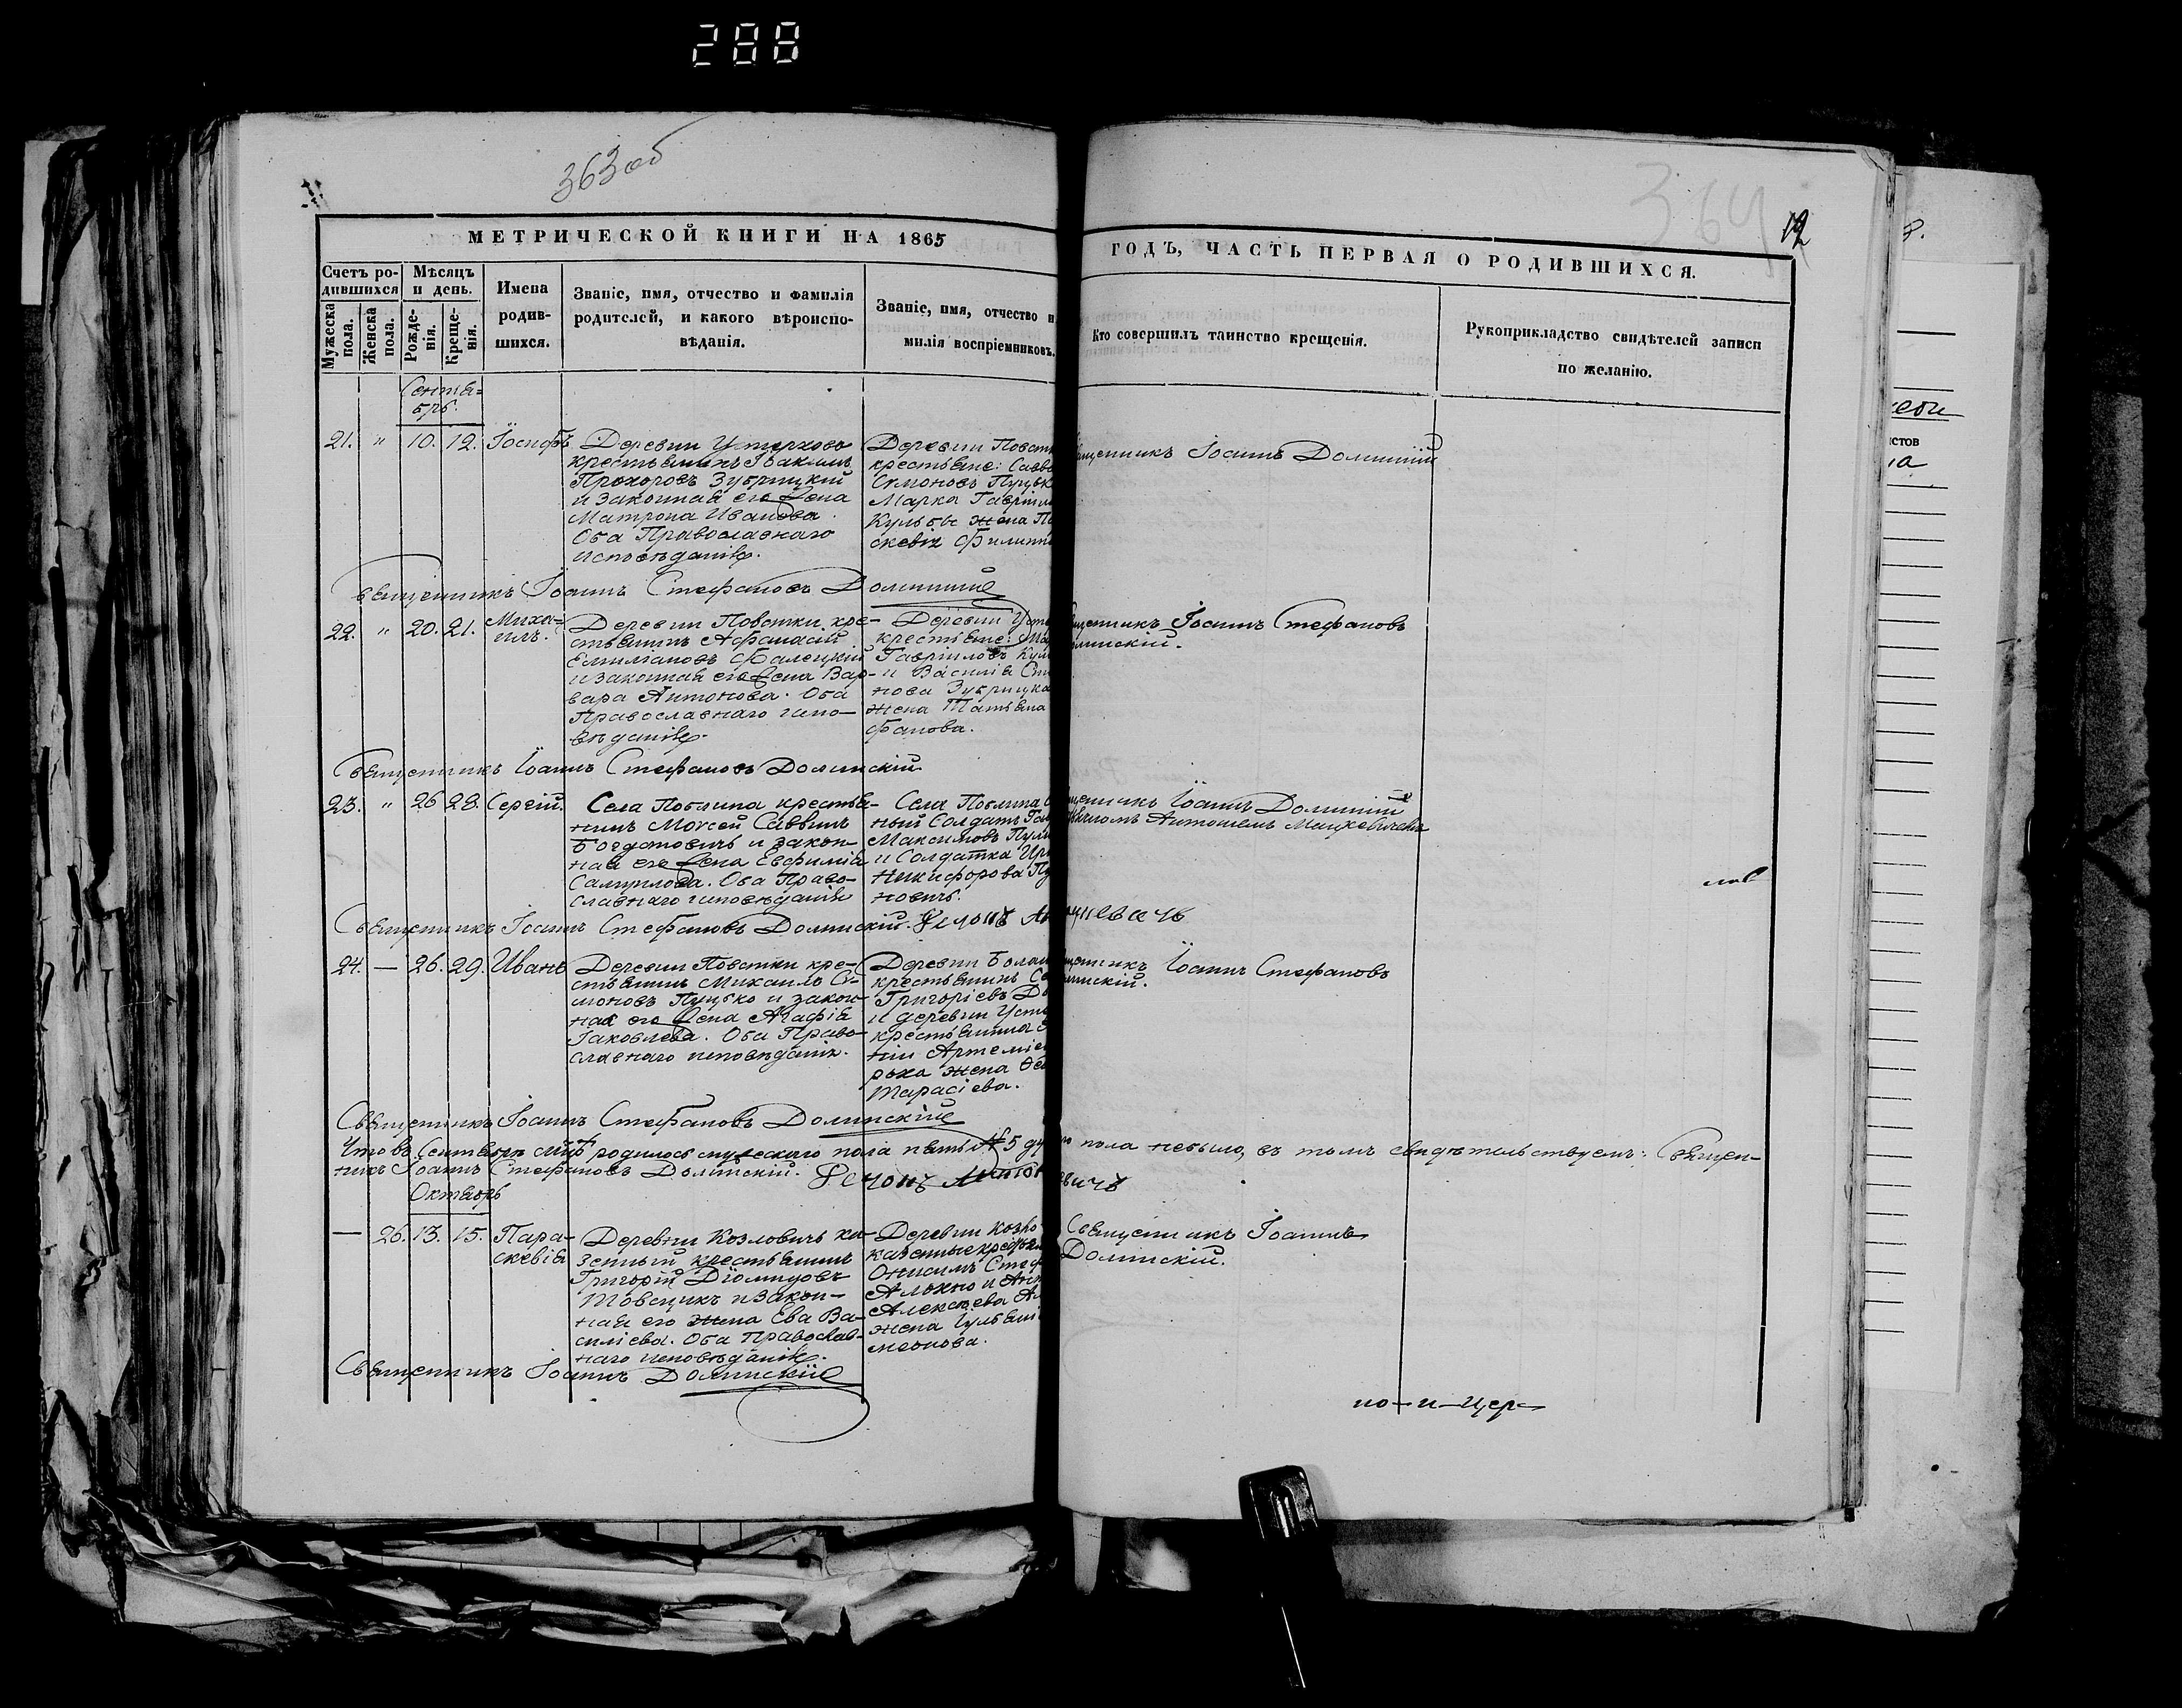 288
363 об
364
12
МЕТРИЧЕСКОЙ КНИГИ НА 1865
ГОДЪ, ЧАСТЬ ПЕРВАЯ О РОДИВШИХСЯ.
Счетъ ро-
дившихся
Мужеска
пола.
Женска
пола.
Мѣсяцъ
и день.
Рожде-
нія.
Креще-
нія.
Имена
родив-
шихся.
Званіе, имя, отчество и фамилія
родителей, и какого вѣроиспо-
вѣданія.
Званіе, имя, отчество и
милія воспріемниковъ.
Кто совершилъ таинство крещенія.
Рукоприкладство свидѣтелей записи
по желанію.
Сентя-
брь.
21. " 10. 12. Іосифъ
Деревни
крестьянинъ Іоакимъ
Прохоровъ Зубрицкій
и законная его жена
Матрона Иванова.
Оба Православнаго
исповѣданія.
Деревни Повстк
крестьяне: Савв
Симоновъ Пуцьк
Марка Гавріил
Кульбы жена Па
скевія Филипп
ященникъ Іоаннъ Долинскій
Священникъ Іоаннъ Стефановъ Долинскій
22. " 20. 21. Миха-
илъ.
Деревни Повстки кре-
стьянинъ Афанасій
Емиліановъ Фалецкій
и законная его жена Вар-
вара Антонова. Оба
Православнаго испо-
вѣданія.
Деревни Усте
крестьяне: Ма
Гавріиловъ Кул
и Василія Сте
нова Зубрицка
жена Татьяна
фанова.
ященникъ Іоаннъ Стефановъ
олинскій.
Священникъ Іоаннъ Стефановъ Долинскій
23. " 26 28. Сергій.
Села Поблина крестья-
нинъ Моѵсей Саввинъ
Богдановичъ и закон-
ная его жена Евфимія
Самуилова. Оба Право-
славнаго исповѣданія
Села Поблина
ный Солдатъ Гав
Максимовъ Пул
и Солдатка Ири
Никифорова Пу
новичъ.
ященникъ Іоаннъ Долинскій
Антоніемъ Мицкевичемъ
Священникъ Іоаннъ Стефановъ Долинскій.
24. — 26. 29. Иванъ
Деревни Повстки кре-
стьянинъ Михаилъ Си-
моновъ Пуцько и закон-
ная его жена Агафія
Іаковлева. Оба Право-
славнаго исповѣданія.
Деревни
крестьянинъ
Григоріевъ
и деревни Усте
крестьянина
ніи Артемів
рыха жена Ѳео
Тарасіева.
ященникъ Іоаннъ Стефановъ
олинскій.
Священникъ Іоаннъ Стефановъ Долинскій
Что въ Сентябрѣ родилось мужескаго пола пять № 5 ду пола небыло, въ томъ свидѣтельствуемъ: Священ-
никъ Іоаннъ Стефановъ Долинскій.
Октябрь
— 26. 13. 15. Пара-
скевія
Деревни Козловичъ ка-
зенный крестьянинъ
Григорій Діомидовъ
Товсцикъ и закон-
ная его жена Ева Ва-
силіева. Оба Православ-
наго исповѣданія.
Деревни Козло
казенные крестьян
Онисимъ Стеф
Алькно и Ант
Алексѣева Ал
жена Іуліані
меонова.
Священникъ Іоаннъ
Долинскій.
Священникъ Іоаннъ Долинскій
по—и—цер—